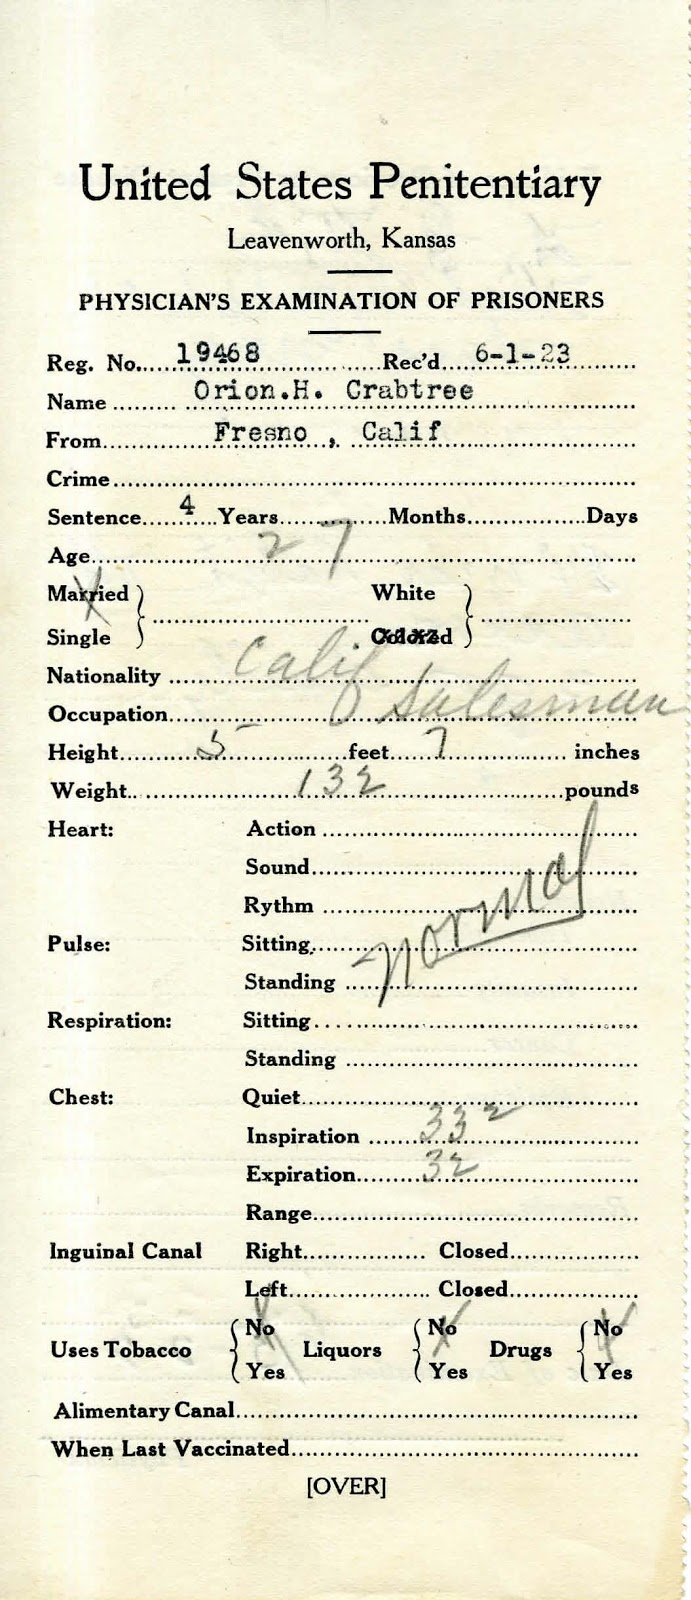 United States Penitentiary
Leavenworth, Kansas
PHYSICIAN'S EXAMINATION OF PRISONERS
Reg. No. 19468 Rec'd 6-1-23
Name Orion.H. Crabtree
From Fresno , Calif
Crime
Sentence 4 Years Months Days
Age 27
Married White
Single Colored
Nationality Calif
Occupation Salesman
Height 5 feet 7 inches
Weight 132 pounds
Heart: Action
Sound
Rythm
normal
Pulse: Sitting
Standing
Respiration: Sitting
Standing
Chest: Quiet
Inspiration 33 2
Expiration 32
Range
Inguinal Canal Right Closed
Left Closed
Uses Tobacco No Yes Liquors No Yes Drugs No Yes
Alimentary Canal
When Last Vaccinated
[OVER]